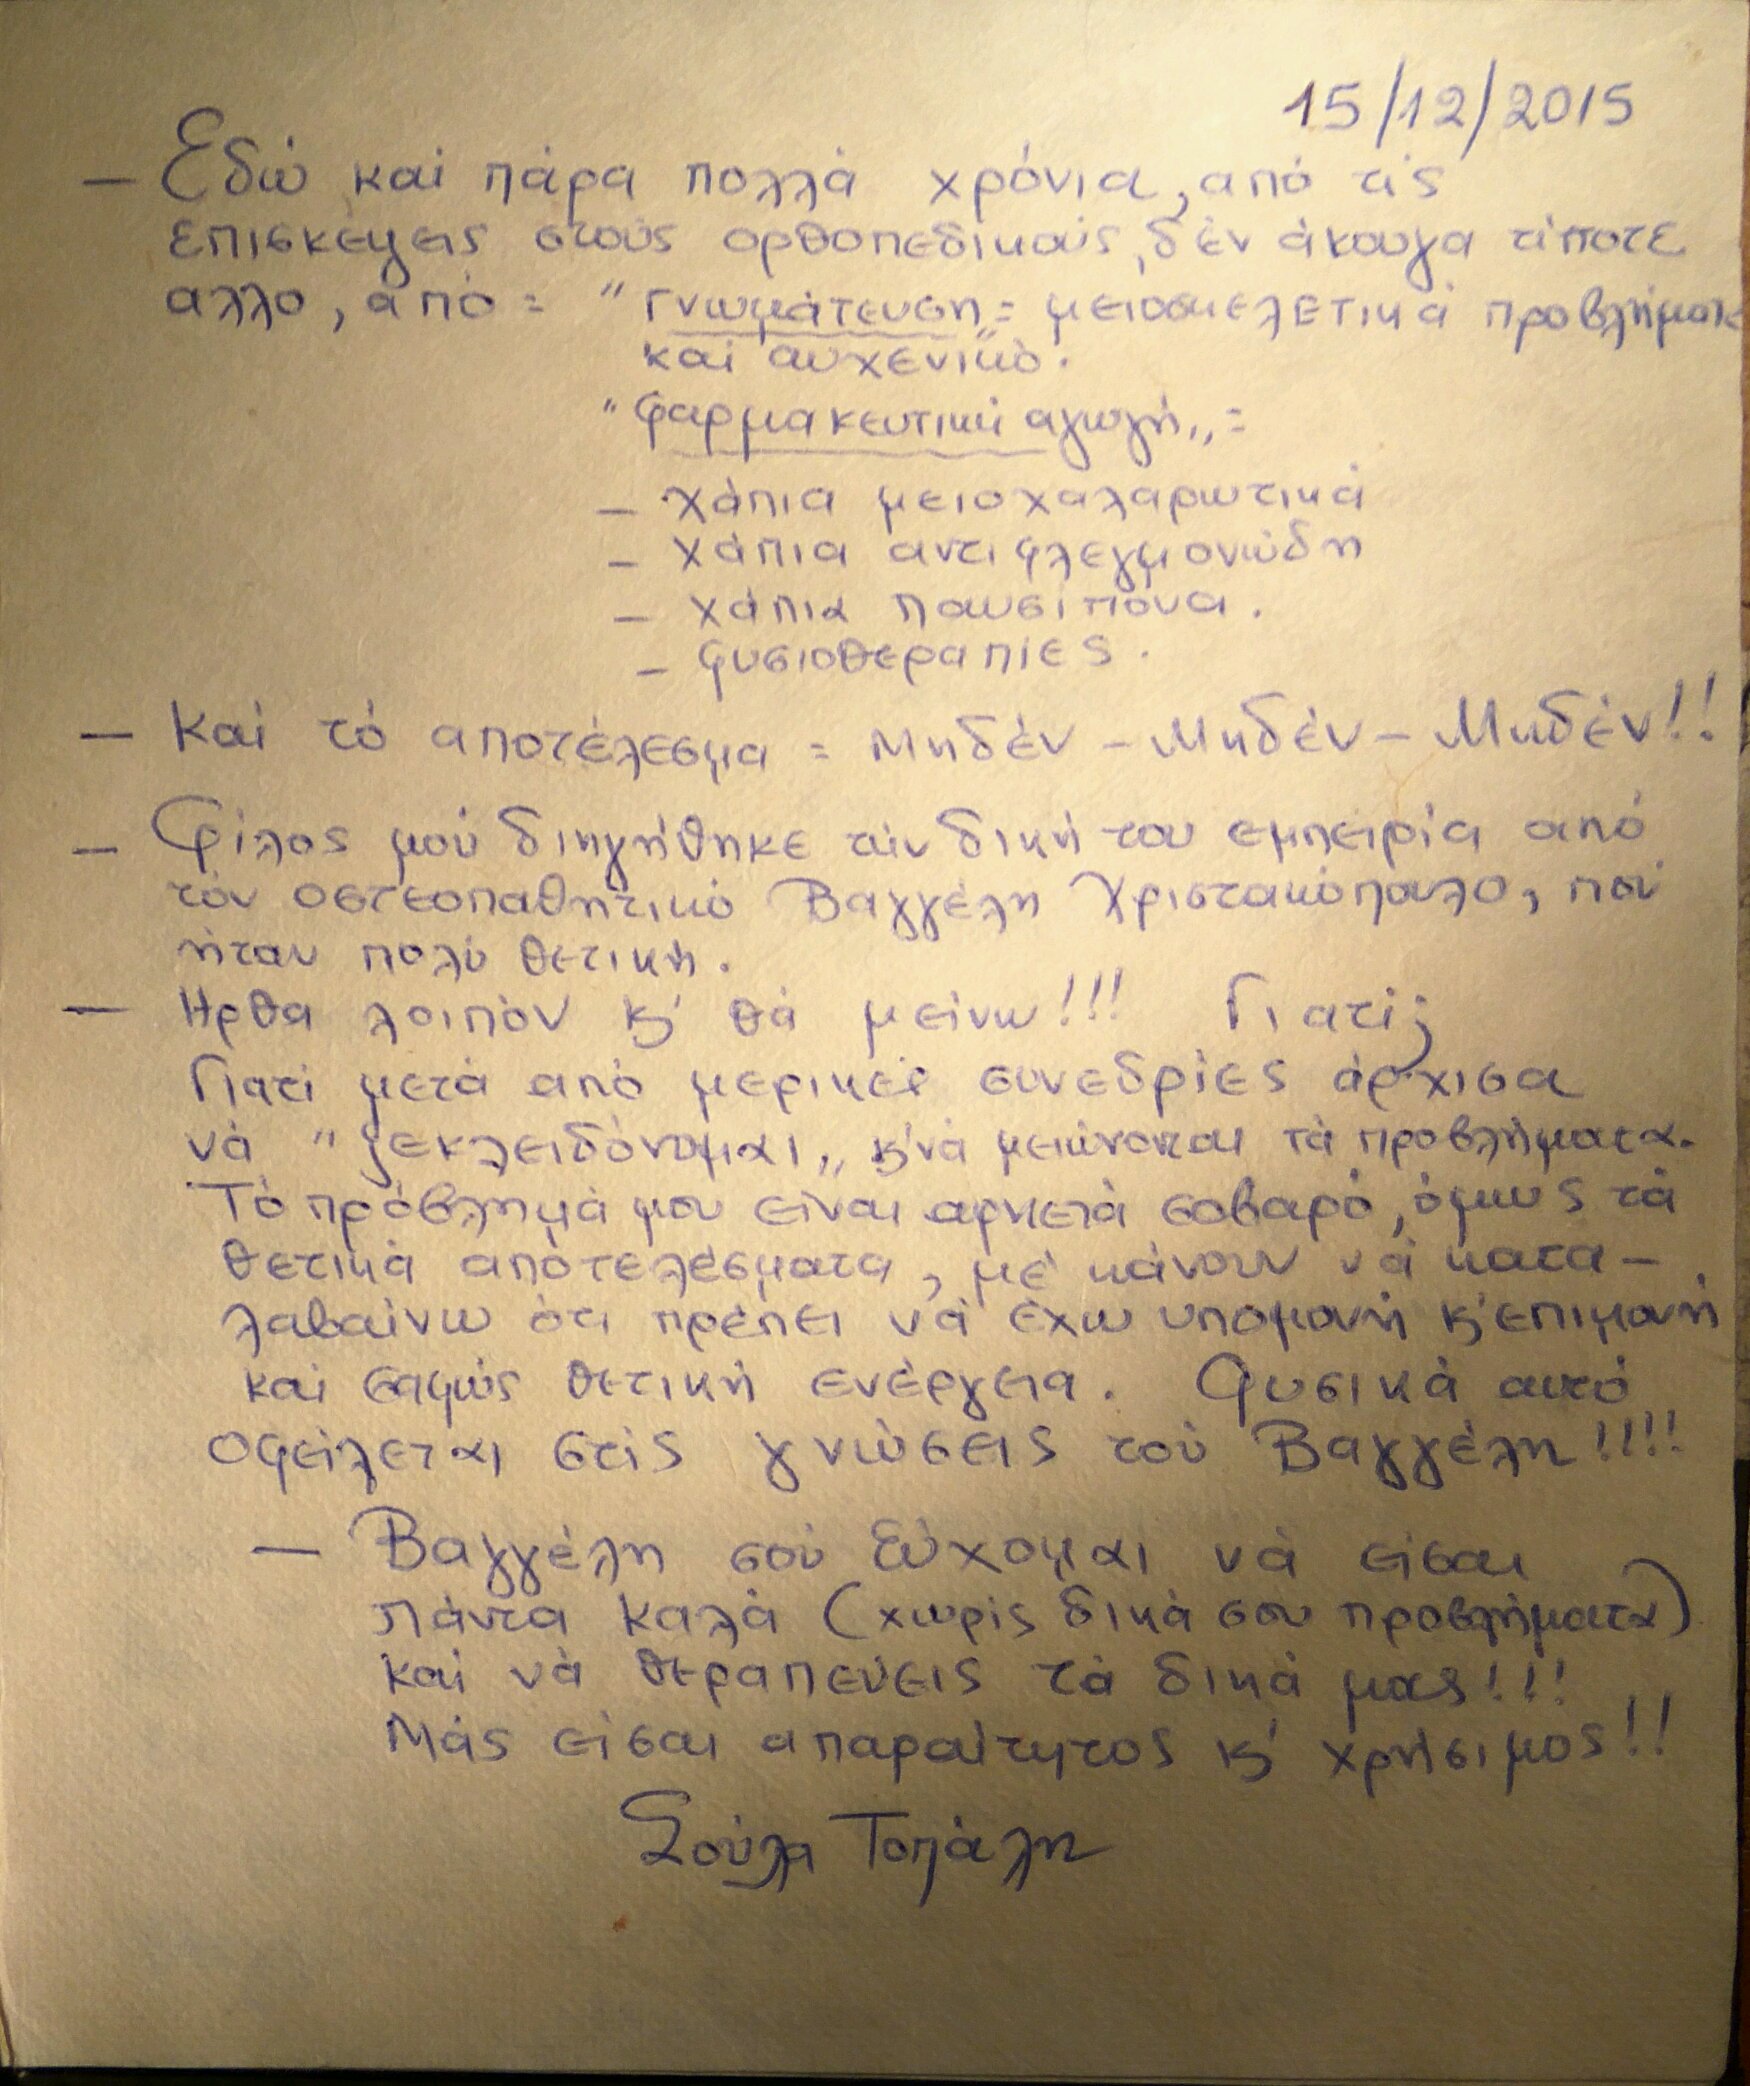 15/12/2015
— Εδώ και πάρα πολλά χρόνια, από τίς
επισκέψεις στούς ορθοπεδικούς, δέν άκουγα τίποτε
αλλο, από = " Γνωμάτευση = μειοσκελετικά προβλήματα
και αυχενικό".
" Φαρμακευτική αγωγή,, =
– Χάπια μειοχαλαρωτικά
– χάπια αντιφλεγμονώδη
– χάπια παυσίπονα.
– φυσιοθεραπίες.
— Καί τό αποτέλεσμα = Μηδέν – Μηδέν – Μηδέν!!
— Φίλος μού διηγήθηκε τήν δική του εμπειρία από
τόν οστεοπαθητικό Βαγγέλη Χριστακόπουλο, πού
ήταν πολύ θετική.
— Ηρθα λοιπόν κ' θά μείνω!!! Γιατί;
Γιατί μετά από μερικές συνεδρίες άρχισα
νά " ξεκλειδόνομαι,, κ' νά μειώνονται τά προβλήματα.
Τό πρόβλημά μου είναι αρκετά σοβαρό, όμως τά
θετικά αποτελέσματα, μέ κάνουν νά κατα–
λαβαίνω ότι πρέπει νά έχω υπομονή κ' επιμονή
και σαφώς θετική ενέργεια. Φυσικά αυτό
οφείλεται στίς γνώσεις τού Βαγγέλη!!!!
— Βαγγέλη σού εύχομαι νά είσαι
πάντα καλά (χωρίς δικά σου προβλήματα)
καί νά θεραπεύεις τά δικά μας!!!
Μάς είσαι απαραίτητος κ' χρήσιμος!!
Σούλα Τοπάλη